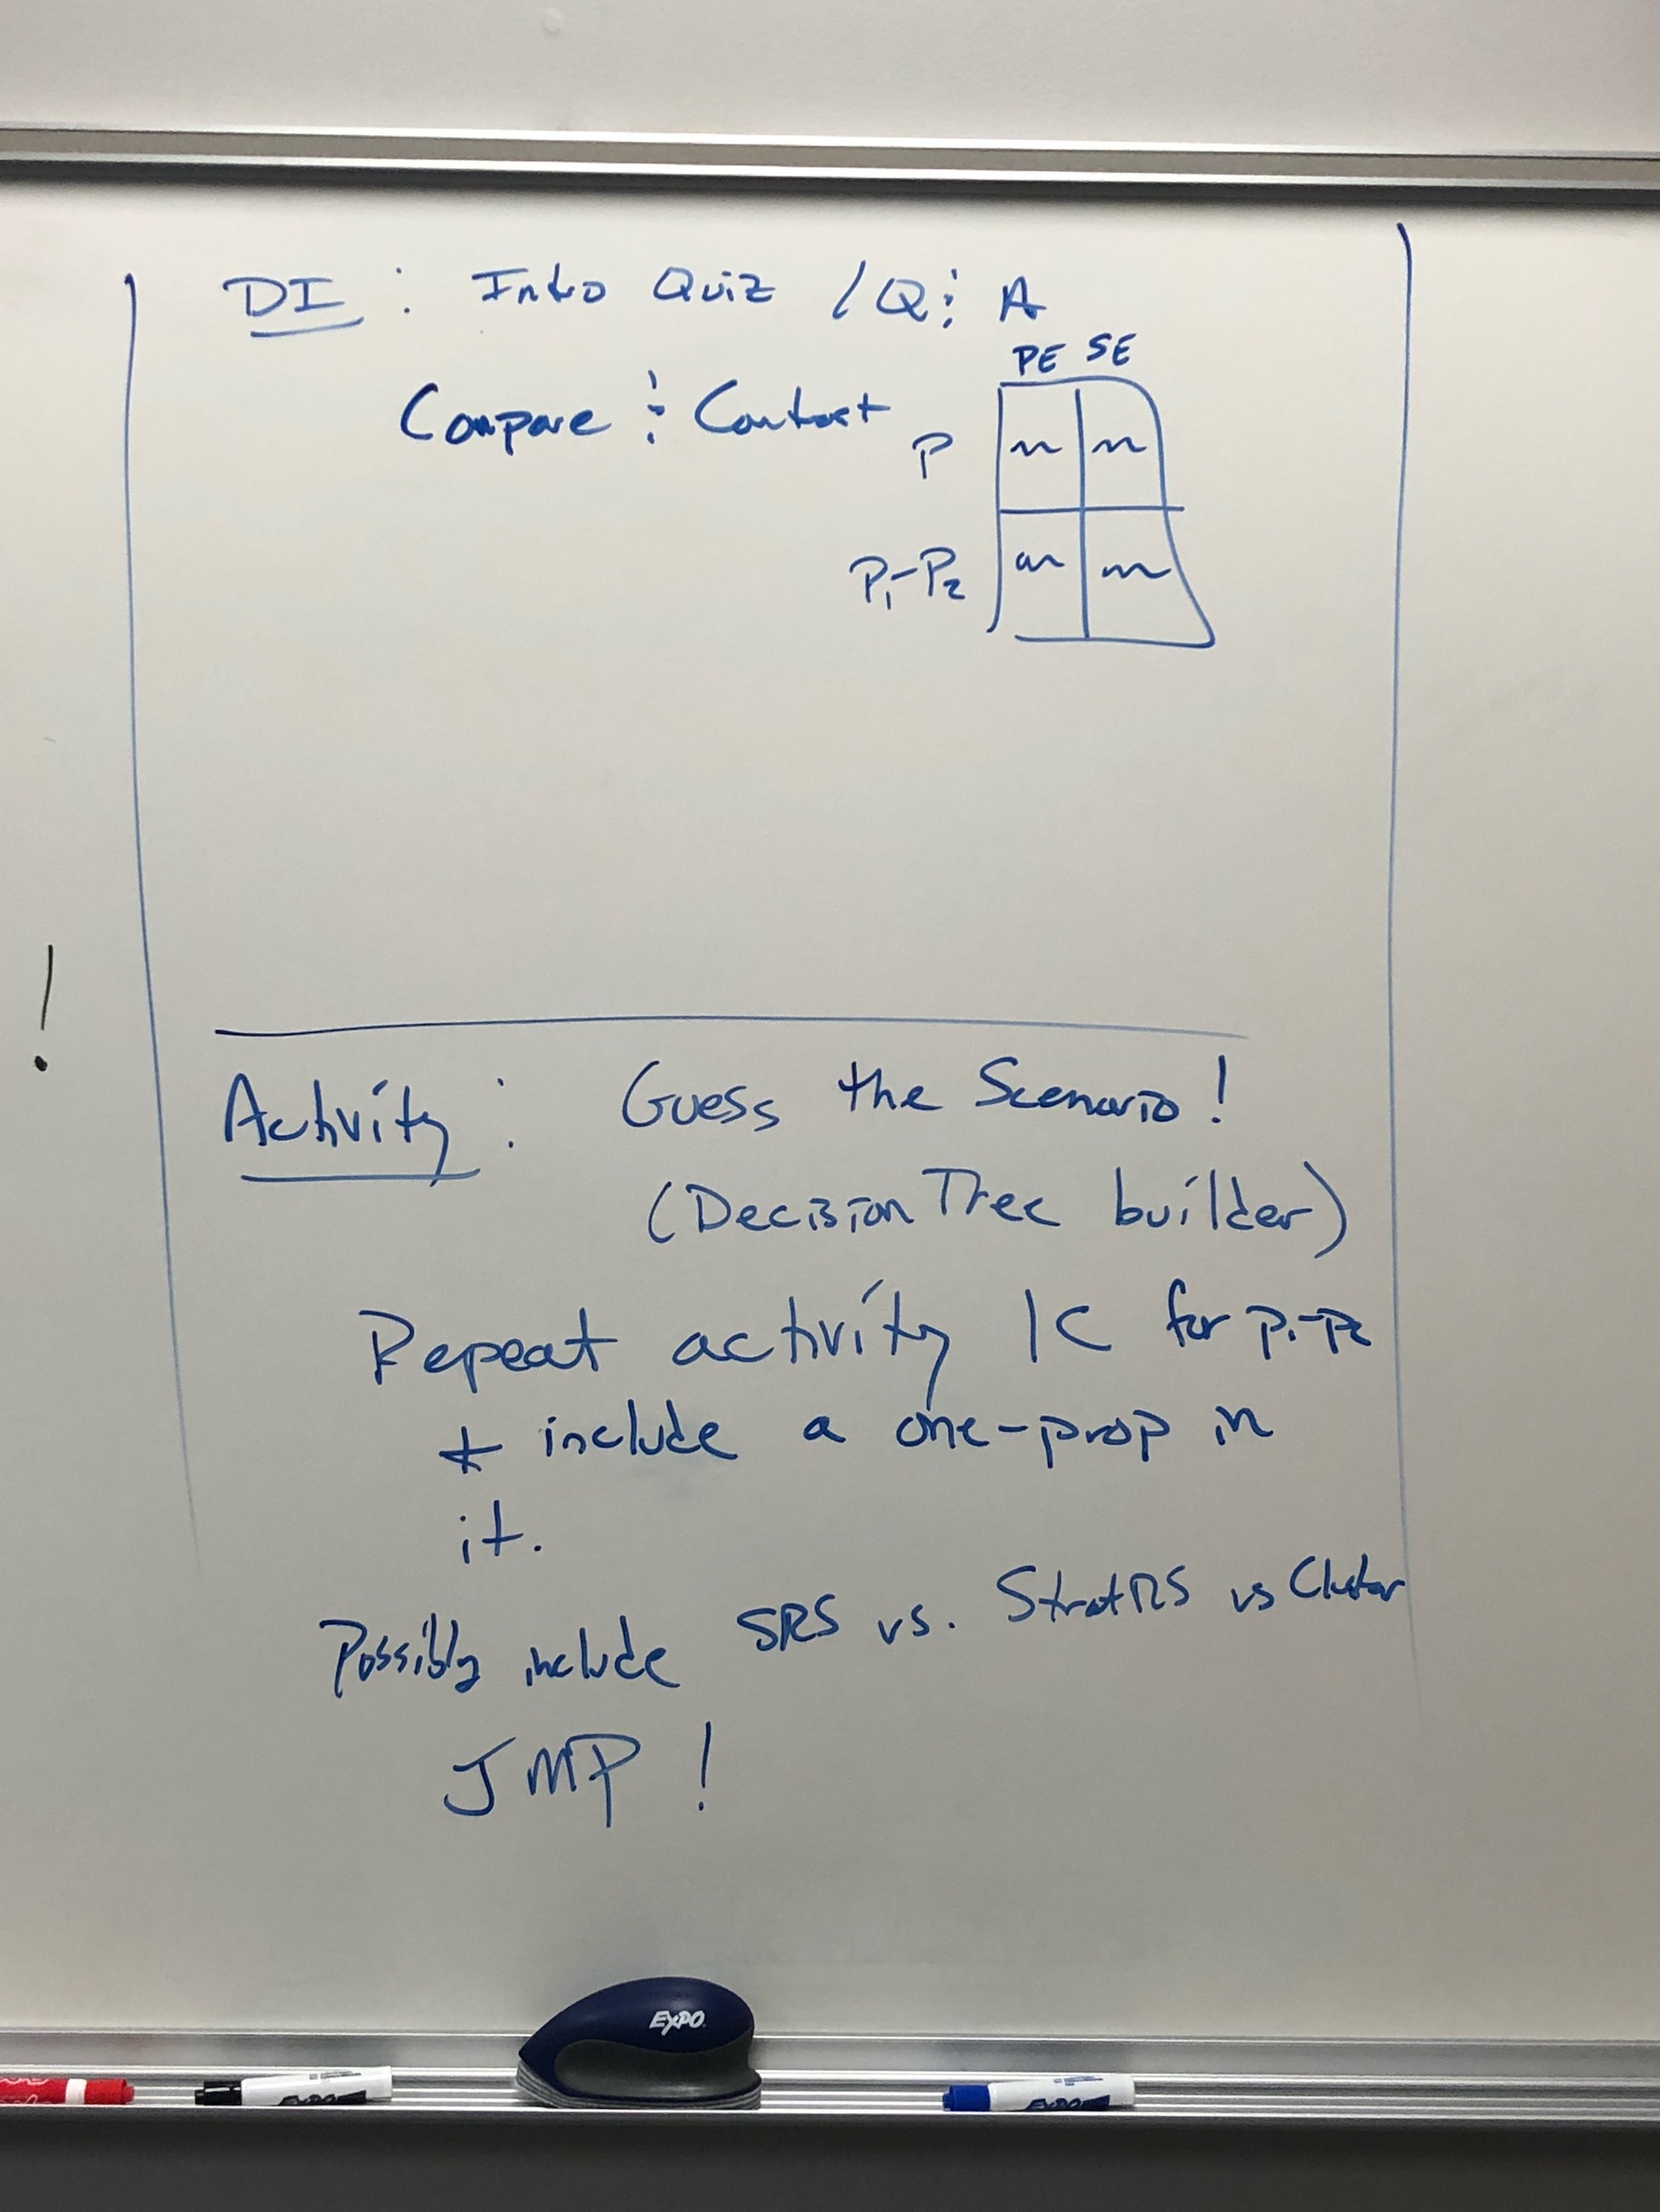 DI : Intro Quiz / Q & A
PE SE
Compare & Contrast
P
P₁-P₂
!
Activity : Guess the Scenario!
(Decision Tree builder)
Repeat activity 1C for P₁-P₂
+ include a one-prop in
it.
Possibly include SRS vs. StratRS vs Cluster
JMP !
EXPO
EXPO
EXPO